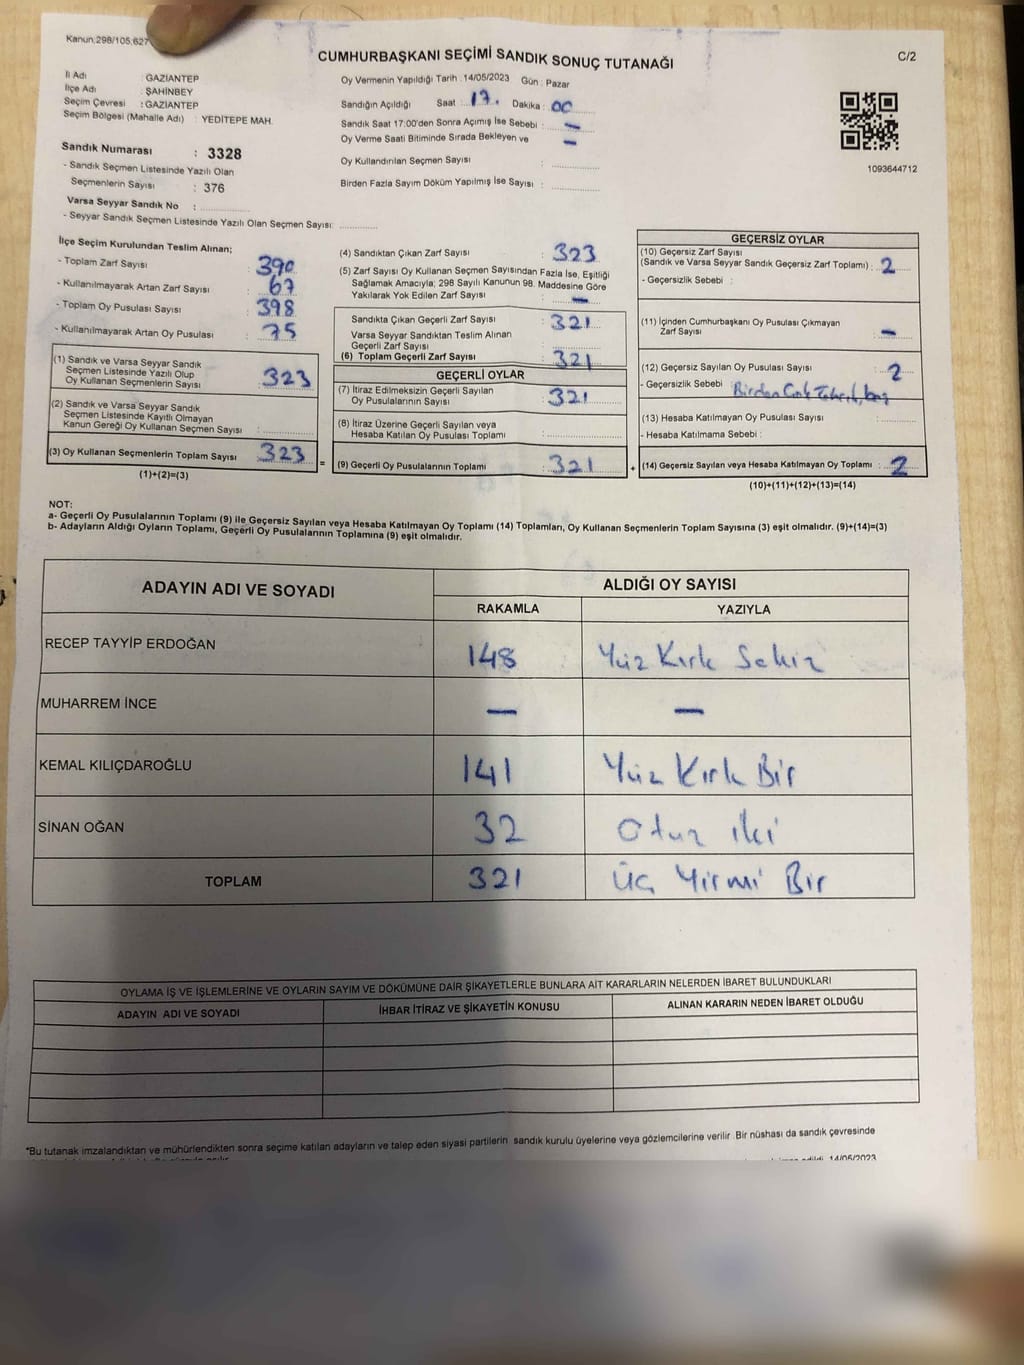 Kanun.298/105;627
CUMHURBAŞKANI SEÇİMİ SANDIK SONUÇ TUTANAĞI
C/2
İl Adı : GAZİANTEP
İlçe Adı : ŞAHİNBEY
Seçim Çevresi : GAZİANTEP
Seçim Bölgesi (Mahalle Adı) : YEDİTEPE MAH.
Sandık Numarası : 3328
- Sandık Seçmen Listesinde Yazılı Olan
Seçmenlerin Sayısı : 376
Varsa Seyyar Sandık No :
- Seyyar Sandık Seçmen Listesinde Yazılı Olan Seçmen Sayısı:
Oy Vermenin Yapıldığı Tarih : 14/05/2023 Gün : Pazar
Sandığın Açıldığı Saat : 17. Dakika : 00
Sandık Saat 17:00'den Sonra Açımış İse Sebebi : –
Oy Verme Saati Bitiminde Sırada Bekleyen ve –
Oy Kullandırılan Seçmen Sayısı :
Birden Fazla Sayım Döküm Yapılmış İse Sayısı :
1093644712
İlçe Seçim Kurulundan Teslim Alınan;
- Toplam Zarf Sayısı : 390
- Kullanılmayarak Artan Zarf Sayısı : 67
- Toplam Oy Pusulası Sayısı : 398
- Kullanılmayarak Artan Oy Pusulası : 75
(1) Sandık ve Varsa Seyyar Sandık
Seçmen Listesinde Yazılı Olup
Oy Kullanan Seçmenlerin Sayısı : 323
(2) Sandık ve Varsa Seyyar Sandık
Seçmen Listesinde Kayıtlı Olmayan
Kanun Gereği Oy Kullanan Seçmen Sayısı :
(3) Oy Kullanan Seçmenlerin Toplam Sayısı : 323
(1)+(2)=(3)
(4) Sandıktan Çıkan Zarf Sayısı : 323
(5) Zarf Sayısı Oy Kullanan Seçmen Sayısından Fazla İse, Eşitliği
Sağlamak Amacıyla; 298 Sayılı Kanunun 98. Maddesine Göre
Yakılarak Yok Edilen Zarf Sayısı : –
Sandıkta Çıkan Geçerli Zarf Sayısı : 321
Varsa Seyyar Sandıktan Teslim Alınan
Geçerli Zarf Sayısı :
(6) Toplam Geçerli Zarf Sayısı : 321
GEÇERLİ OYLAR
(7) İtiraz Edilmeksizin Geçerli Sayılan
Oy Pusulalarının Sayısı : 321
(8) İtiraz Üzerine Geçerli Sayılan veya
Hesaba Katılan Oy Pusulası Toplamı :
= (9) Geçerli Oy Pusulalarının Toplamı : 321 +
GEÇERSİZ OYLAR
(10) Geçersiz Zarf Sayısı
(Sandık ve Varsa Seyyar Sandık Geçersiz Zarf Toplamı) : 2
- Geçersizlik Sebebi :
(11) İçinden Cumhurbaşkanı Oy Pusulası Çıkmayan
Zarf Sayısı : –
(12) Geçersiz Sayılan Oy Pusulası Sayısı : 2
- Geçersizlik Sebebi : Birden
(13) Hesaba Katılmayan Oy Pusulası Sayısı :
- Hesaba Katılmama Sebebi :
(14) Geçersiz Sayılan veya Hesaba Katılmayan Oy Toplamı : 2
(10)+(11)+(12)+(13)=(14)
NOT:
a- Geçerli Oy Pusulalarının Toplamı (9) ile Geçersiz Sayılan veya Hesaba Katılmayan Oy Toplamı (14) Toplamları, Oy Kullanan Seçmenlerin Toplam Sayısına (3) eşit olmalıdır. (9)+(14)=(3)
b- Adayların Aldığı Oyların Toplamı, Geçerli Oy Pusulalarının Toplamına (9) eşit olmalıdır.
ADAYIN ADI VE SOYADI
ALDIĞI OY SAYISI
RAKAMLA YAZIYLA
RECEP TAYYİP ERDOĞAN 148 Yüz Kırk Sekiz
MUHARREM İNCE – –
KEMAL KILIÇDAROĞLU 141 Yüz Kırk Bir
SİNAN OĞAN 32 Otuz iki
TOPLAM 321 Üç Yirmi Bir
OYLAMA İŞ VE İŞLEMLERİNE VE OYLARIN SAYIM VE DÖKÜMÜNE DAİR ŞİKAYETLERLE BUNLARA AİT KARARLARIN NELERDEN İBARET BULUNDUKLARI
ADAYIN ADI VE SOYADI İHBAR İTİRAZ VE ŞİKAYETİN KONUSU ALINAN KARARIN NEDEN İBARET OLDUĞU
*Bu tutanak imzalandıktan ve mühürlendikten sonra seçime katılan adayların ve talep eden siyasi partilerin sandık kurulu üyelerine veya gözlemcilerine verilir .Bir nüshası da sandık çevresinde
14/05/2023